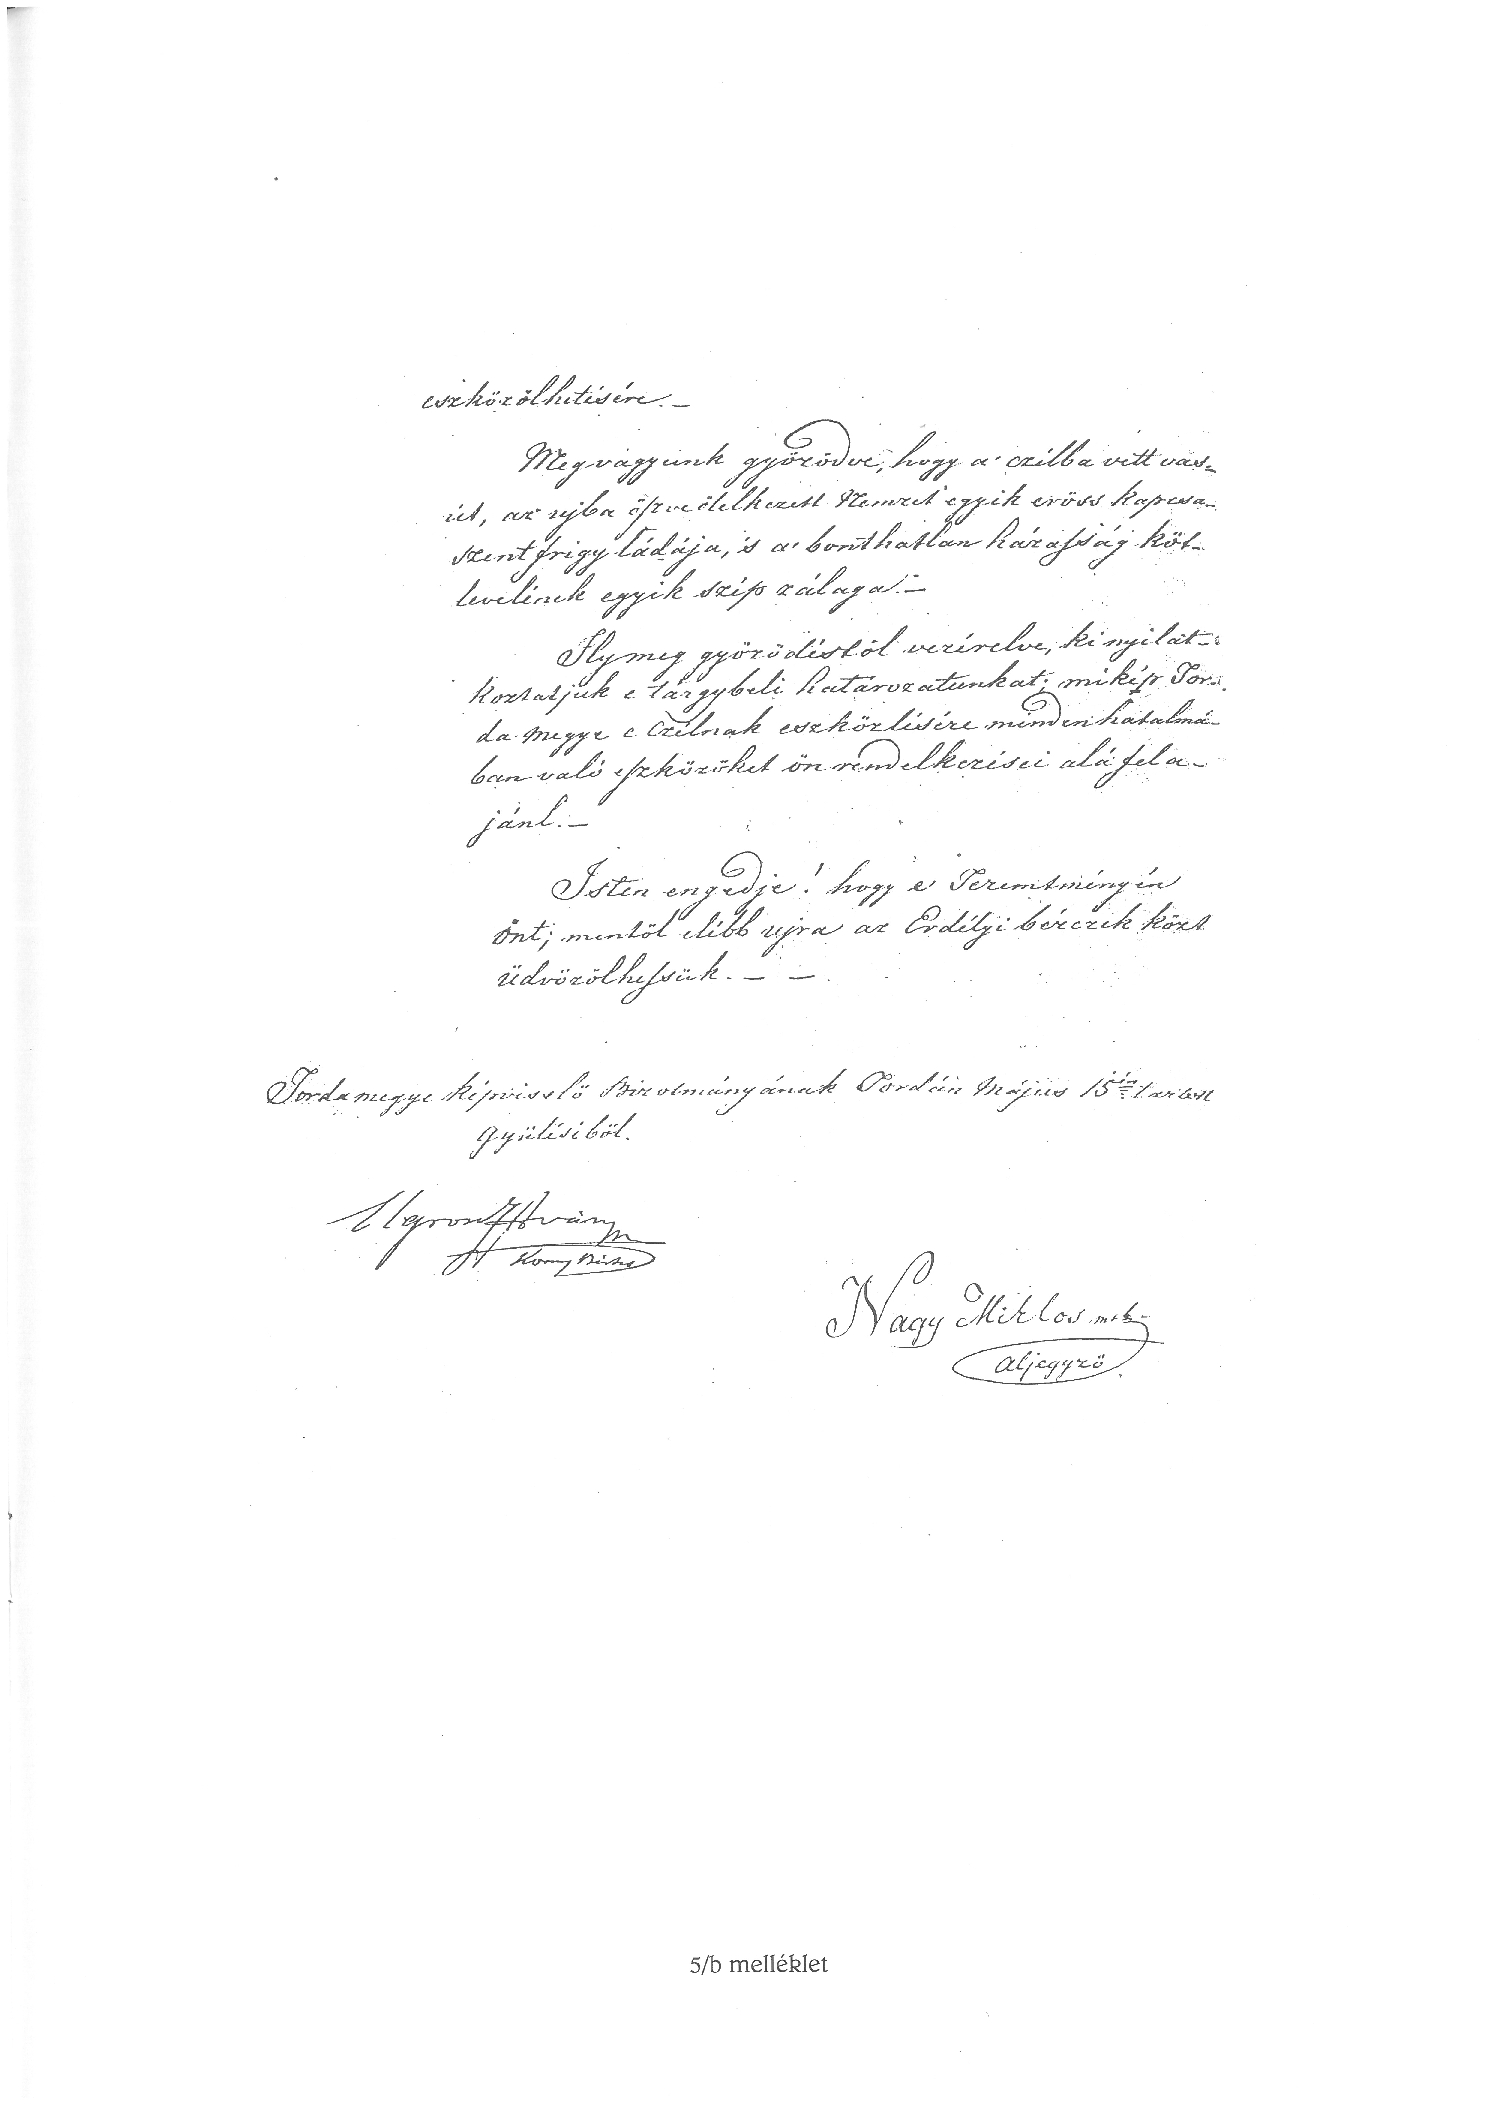 eszközölhetésére. —
Megvagyunk győződve, hogy a' czélba vett vas-
út, az ujba öszve ölelkezett Nemzet egyik erőss kapcsa
szent frigy ládája, 's a' bonthatlan házasság köt-
levelének egyik szép záloga. —
Ily meg győződéstől vezérelve, ki nyilat-
koztatjuk e tárgybeli határozatunkat; mikép Tor-
da megye e czélnak eszközlésére minden hatalmá-
ban való eszközöket ön rendelkezései alá fel a-
jánl. —
Isten engedje! hogy e' Teremtményén
Önt; mentől elébb ujra az Erdélyi bérczek közt
üdvözölhessük. — —
Tordamegye képviselő Bizotmányának Tordán Május 15én tartott
Gyüléséből.
Ugron István
Nagy Miklos mk.
Aljegyző
5/b melléklet